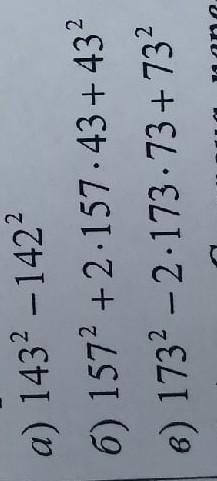 а) 143² − 142²
б) 157² + 2·157·43 + 43²
в) 173² − 2·173·73 + 73²